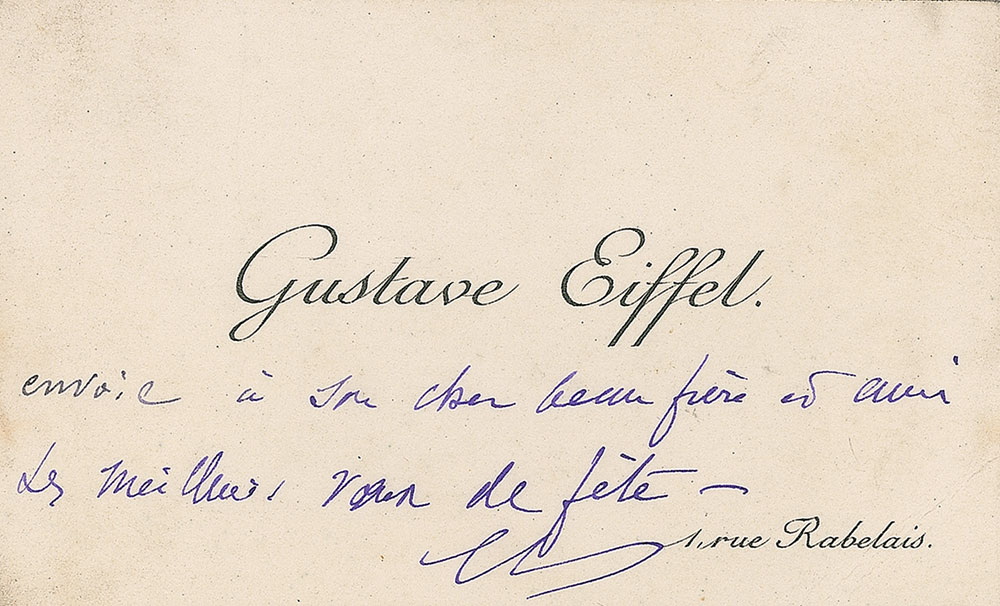 Gustave Eiffel.
envoie à son cher beau frère et ami
Les meilleurs vœux de fête —
1, rue Rabelais.